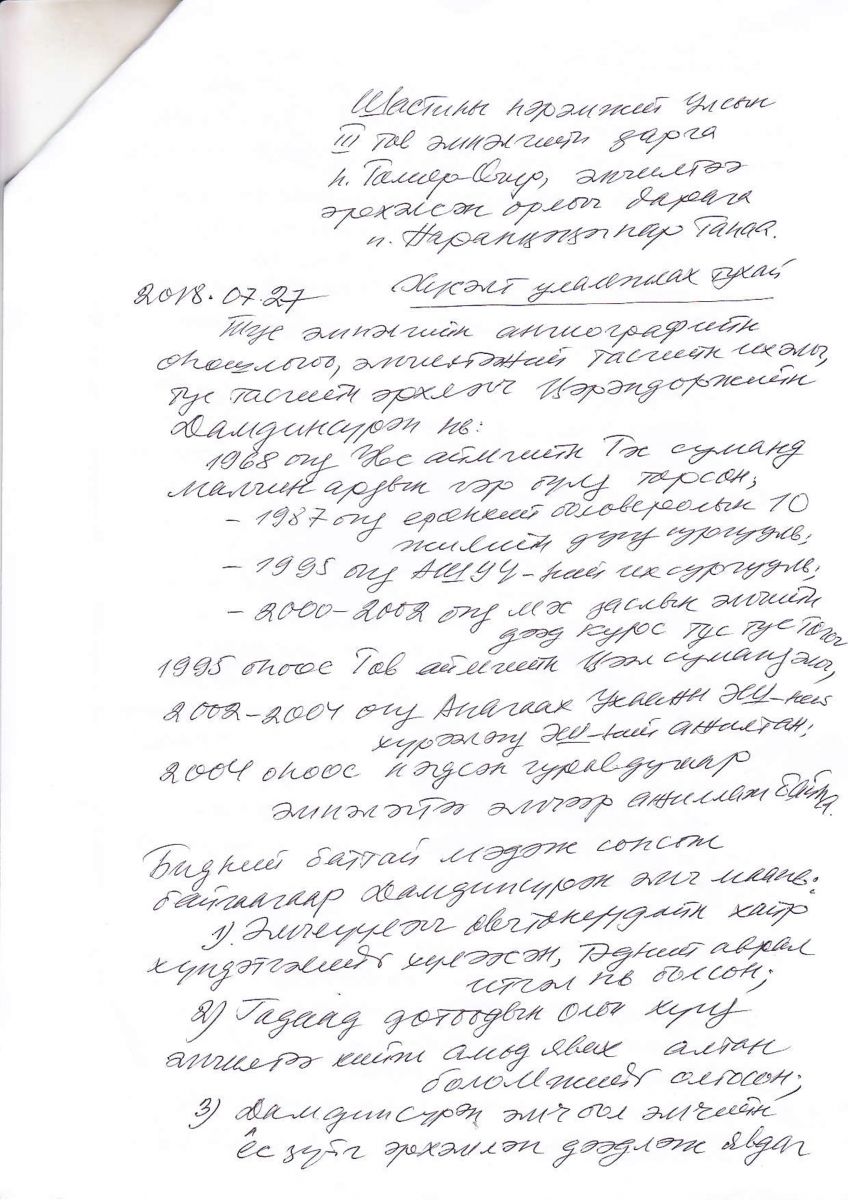 Шастины нэрэмжит Улсын
III төв эмнэлгийн дарга
н. Төмөр-Очир, эмчилгээ
эрхэлсэн орлогч дарга
н. Наранцэцэг нар Танаа.
2018.07.27 Хүсэлт уламжлах тухай
Тус эмнэлгийн ангиографийн
оношлогоо, эмчилгээний тасгийн их эмч,
тус тасгийн эрхлэгч Цэрэндоржийн
Дамдинсүрэн нь:
1968 онд Увс аймгийн Тэс суманд
малчин ардын гэр бүлд төрсөн;
- 1987 онд ерөнхий боловсролын 10
жилийн дунд сургууль;
- 1995 онд АШУҮ-ний их сургууль;
- 2000-2002 онд мэс заслын эмчийн
дээд курс тус тус төгсч
1995 оноос Төв аймгийн Цээл суманд эмч,
2002-2004 онд Анагаах Ухааны ЭШ-ний
хүрээлэнд ЭШ-ний ажилтан;
2004 оноос нэгдсэн гуравдугаар
эмнэлэгтээ эмчээр ажиллаж байна.
Бидний баттай мэдэж сонсож
байгаагаар Дамдинсүрэн эмч маань:
1) Эмчлүүлэгч өвчтөнүүдийн хайр
хүндэтгэлийг хүлээсэн, тэдний аврал
итгэл нь болсон;
2) Гадаад дотоодын олон хүнд
эмчилгээ хийж амьд явах алтан
боломжийг олгосон;
3) Дамдинсүрэн эмч бол эмчийн
ёс зүйг эрхэмлэн дээдлэж явдаг